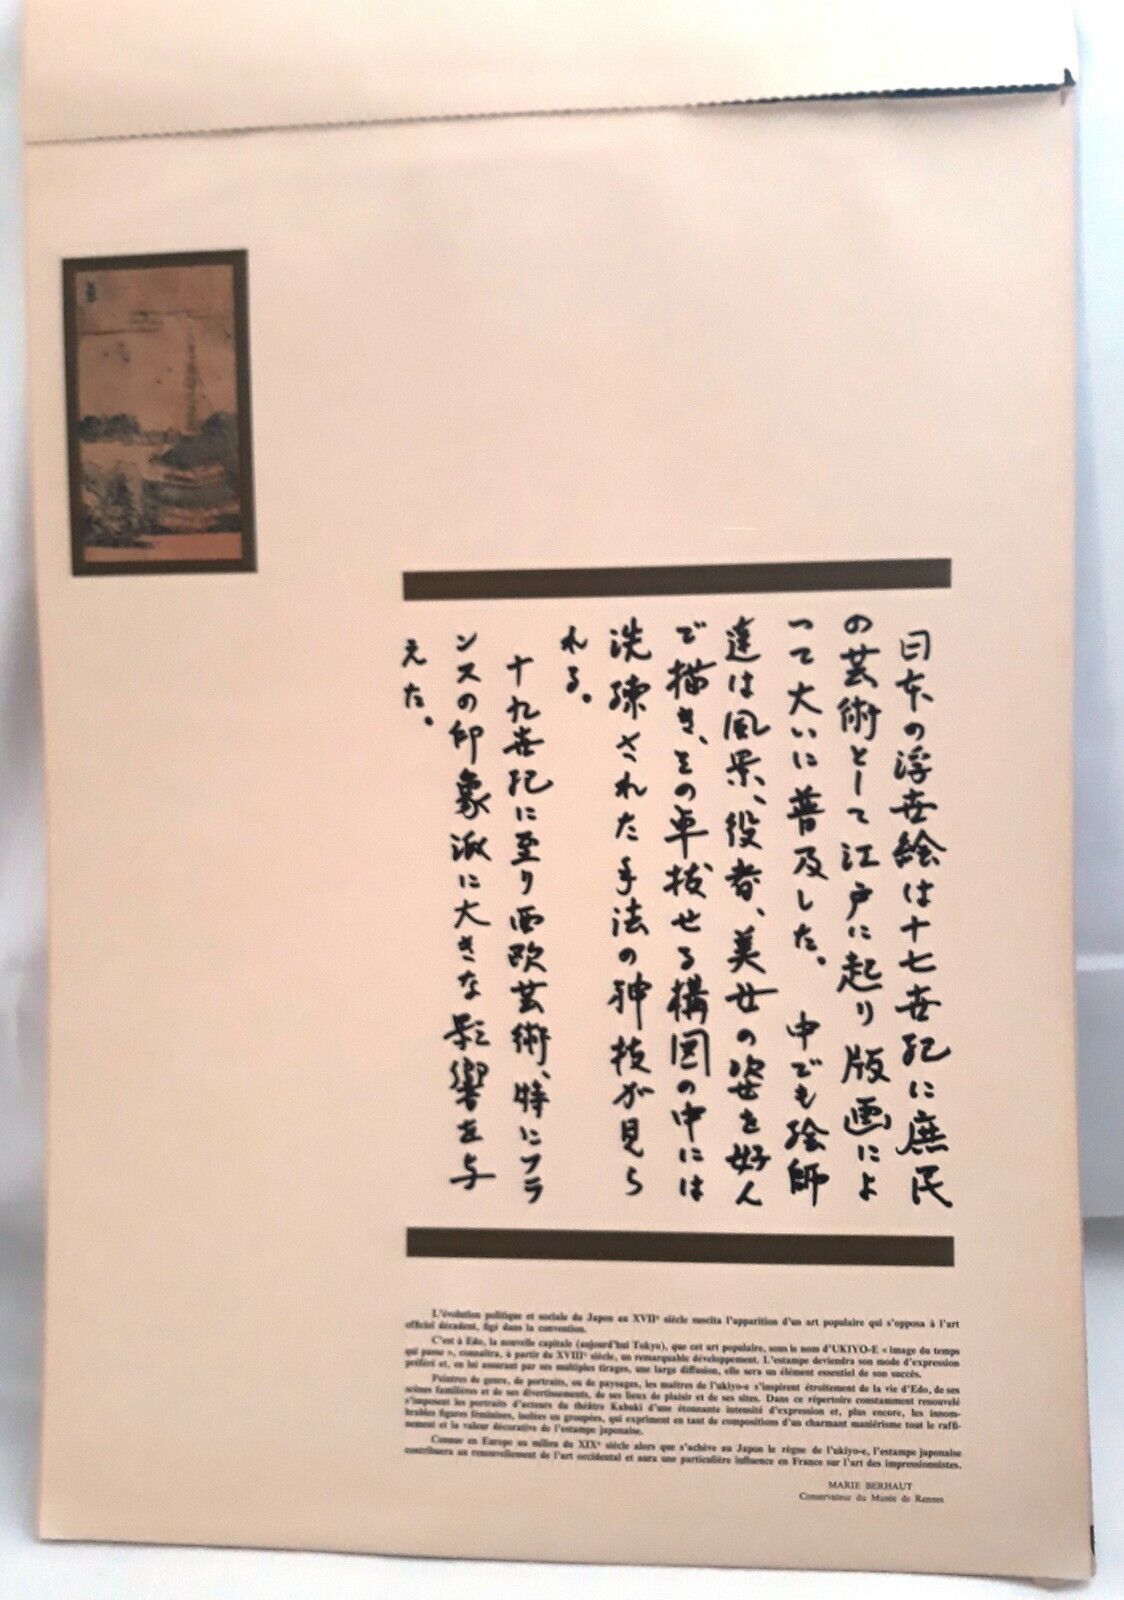 日本の浮世絵は十七世紀に庶民
の芸術として江戸に起り版画によ
って大いに普及した。中でも絵師
達は風景、役者、美女の姿を好ん
で描き、その卓抜せる構図の中には
洗練された手法の神技が見ら
れる。
十九世紀に至り西欧芸術、特にフラ
ンスの印象派に大きな影響を与
えた。
L'évolution politique et sociale du Japon au XVIIe siècle suscita l'apparition d'un art populaire qui s'opposa à l'art
officiel décadent, figé dans la convention.
C'est à Edo, la nouvelle capitale (aujourd'hui Tokyo), que cet art populaire, sous le nom d'UKIYO-E « image du temps
qui passe », connaîtra, à partir du XVIIIe siècle, un remarquable développement. L'estampe deviendra son mode d'expression
préféré et, en lui assurant par ses multiples tirages, une large diffusion, elle sera un élément essentiel de son succès.
Peintres de genre, de portraits, ou de paysages, les maîtres de l'ukiyo-e s'inspirent étroitement de la vie d'Edo, de ses
scènes familières et de ses divertissements, de ses lieux de plaisir et de ses sites. Dans ce répertoire constamment renouvelé
s'imposent les portraits d'acteurs du théâtre Kabuki d'une étonnante intensité d'expression et, plus encore, les innom-
brables figures féminines, isolées ou groupées, qui expriment en tant de compositions d'un charmant maniérisme tout le raffi-
nement et la valeur décorative de l'estampe japonaise.
Connue en Europe au milieu du XIXe siècle alors que s'achève au Japon le règne de l'ukiyo-e, l'estampe japonaise
contribuera au renouvellement de l'art occidental et aura une particulière influence en France sur l'art des impressionnistes.
MARIE BERHAUT
Conservateur du Musée de Rennes